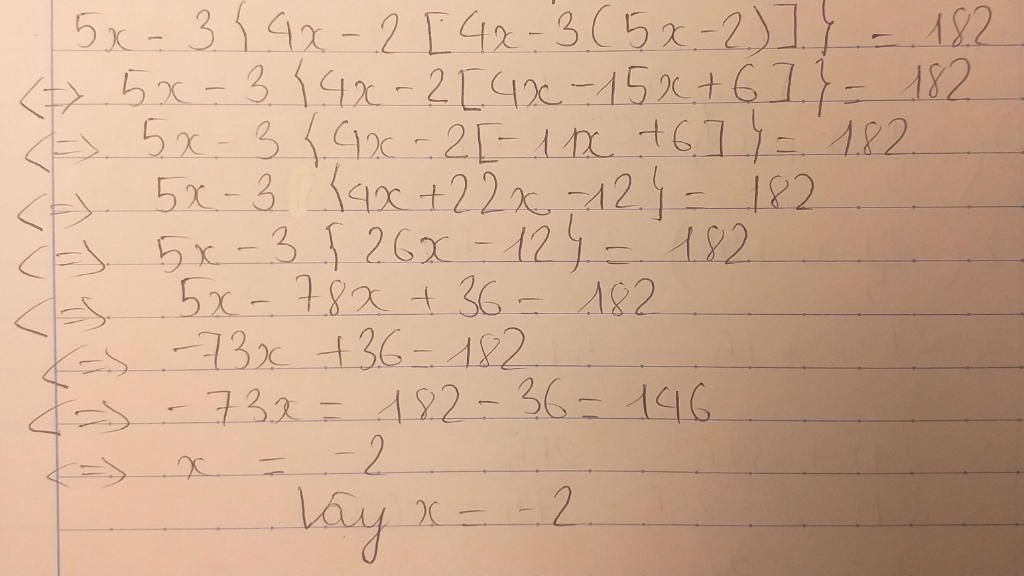 5x - 3 { 4x - 2 [ 4x - 3 ( 5x - 2 ) ] } = 182
<=> 5x - 3 { 4x - 2 [ 4x - 15x + 6 ] } = 182
<=> 5x - 3 { 4x - 2 [ -11x + 6 ] } = 182
<=> 5x - 3 { 4x + 22x - 12 } = 182
<=> 5x - 3 { 26x - 12 } = 182
<=> 5x - 78x + 36 = 182
<=> -73x + 36 = 182
<=> -73x = 182 - 36 = 146
<=> x = -2
Vậy x = -2